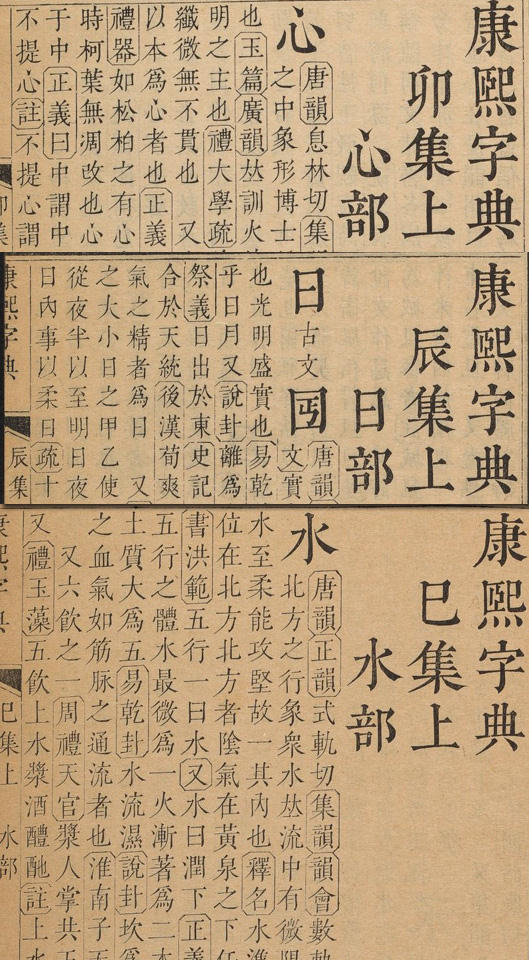 康熙字典
卯集上
心部
心
唐韻息林切集
之中象形博士
也玉篇廣韻𠀤訓火
明之主也禮大學疏
纖微無不貫也 又
以本爲心者也正義
禮器如松柏之有心
時柯葉無凋改也心
于中正義曰中謂中
不提心註不提心謂
康熙字典
辰集上
日部
日
古文
囸
唐韻
文實
也光明盛實也易乾
乎日月又說卦離爲
祭義日出於東史記
合於天統後漢荀爽
氣之精者爲日 又
之大小日之甲乙使
從夜半以至明日夜
日內事以柔日疏十
康熙字典
辰集
康熙字典
巳集上
水部
水
唐韻正韻式軌切集韻韻會數軌
北方之行象衆水𠀤流中有微陽
水至柔能攻堅故一其內也釋名水準
位在北方北方者陰氣在黃泉之下任
書洪範五行一曰水又水曰潤下正義
五行之體水最微爲一火漸著爲二木
土質大爲五易乾卦水流濕說卦坎爲
之血氣如筋脉之通流者也淮南子天
又六飮之一周禮天官漿人掌共王
又禮玉藻五飮上水漿酒醴酏註上水
康熙字典
巳集上
水部